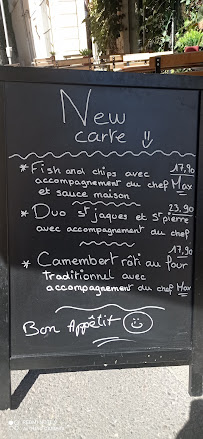 New
carte
* Fish and chips avec 17,90
accompagnement du chef Max
et sauce maison
* Duo St jaques et St pierre 23,90
avec accompagnement du chef
17,90
* Camembert rôti au four
traditionnel avec
accompagnement du chef Max
Bon Appétit